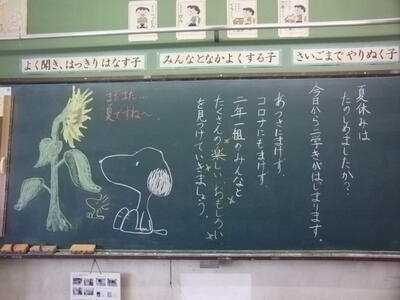 よく聞き、はっきりはなす子
みんなとなかよくする子
さいごまでやりぬく子
夏休みは
たのしめましたか?
今日から二学きがはじまります。
あつさにまけず、
コロナにもまけず
二年一組のみんなと
たくさんの楽しいおもしろい
を見つけていきましょう。
まだまだ…
夏ですね〜